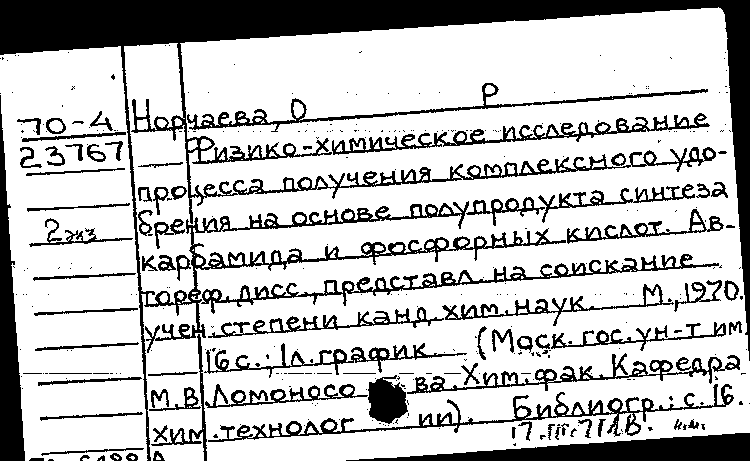 Р
70-4 Норчаева, О
23767 Физико-химическое исследование
процесса получения комплексного удо-
2 экз брения на основе полупродукта синтеза
карбамида и фосфорных кислот. Ав-
тореф. дисс., представл. на соискание
учен. степени канд. хим. наук. М., 1970.
16 с.; 1 л. график. (Моск. гос. ун-т им.
М.В. Ломоносова. Хим. фак. Кафедра
хим. технологии). Библиогр.: с. 16.